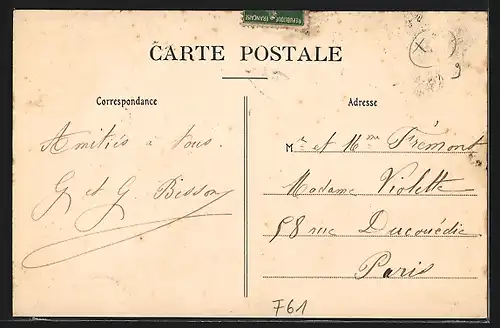 REPUBLIQUE FRANCAISE
CARTE POSTALE
Correspondance
Adresse
Amitiés à tous.
G et G. Bisson
Mr et Mme Frémont
Madame Violette
58 rue Ducouédic
Paris
761